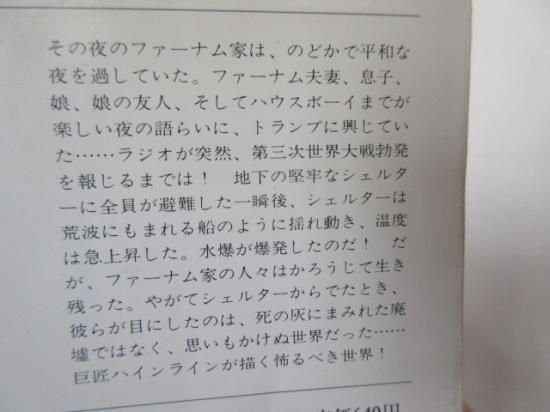 その夜のファーナム家は、のどかで平和な
夜を過していた。ファーナム夫妻、息子、
娘、娘の友人、そしてハウスボーイまでが
楽しい夜の語らいに、トランプに興じてい
た……ラジオが突然、第三次世界大戦勃発
を報じるまでは！　地下の堅牢なシェルタ
ーに全員が避難した一瞬後、シェルターは
荒波にもまれる船のように揺れ動き、温度
は急上昇した。水爆が爆発したのだ！　だ
が、ファーナム家の人々はかろうじて生き
残った。やがてシェルターからでたとき、
彼らが目にしたのは、死の灰にまみれた廃
墟ではなく、思いもかけぬ世界だった……
巨匠ハインラインが描く怖るべき世界！